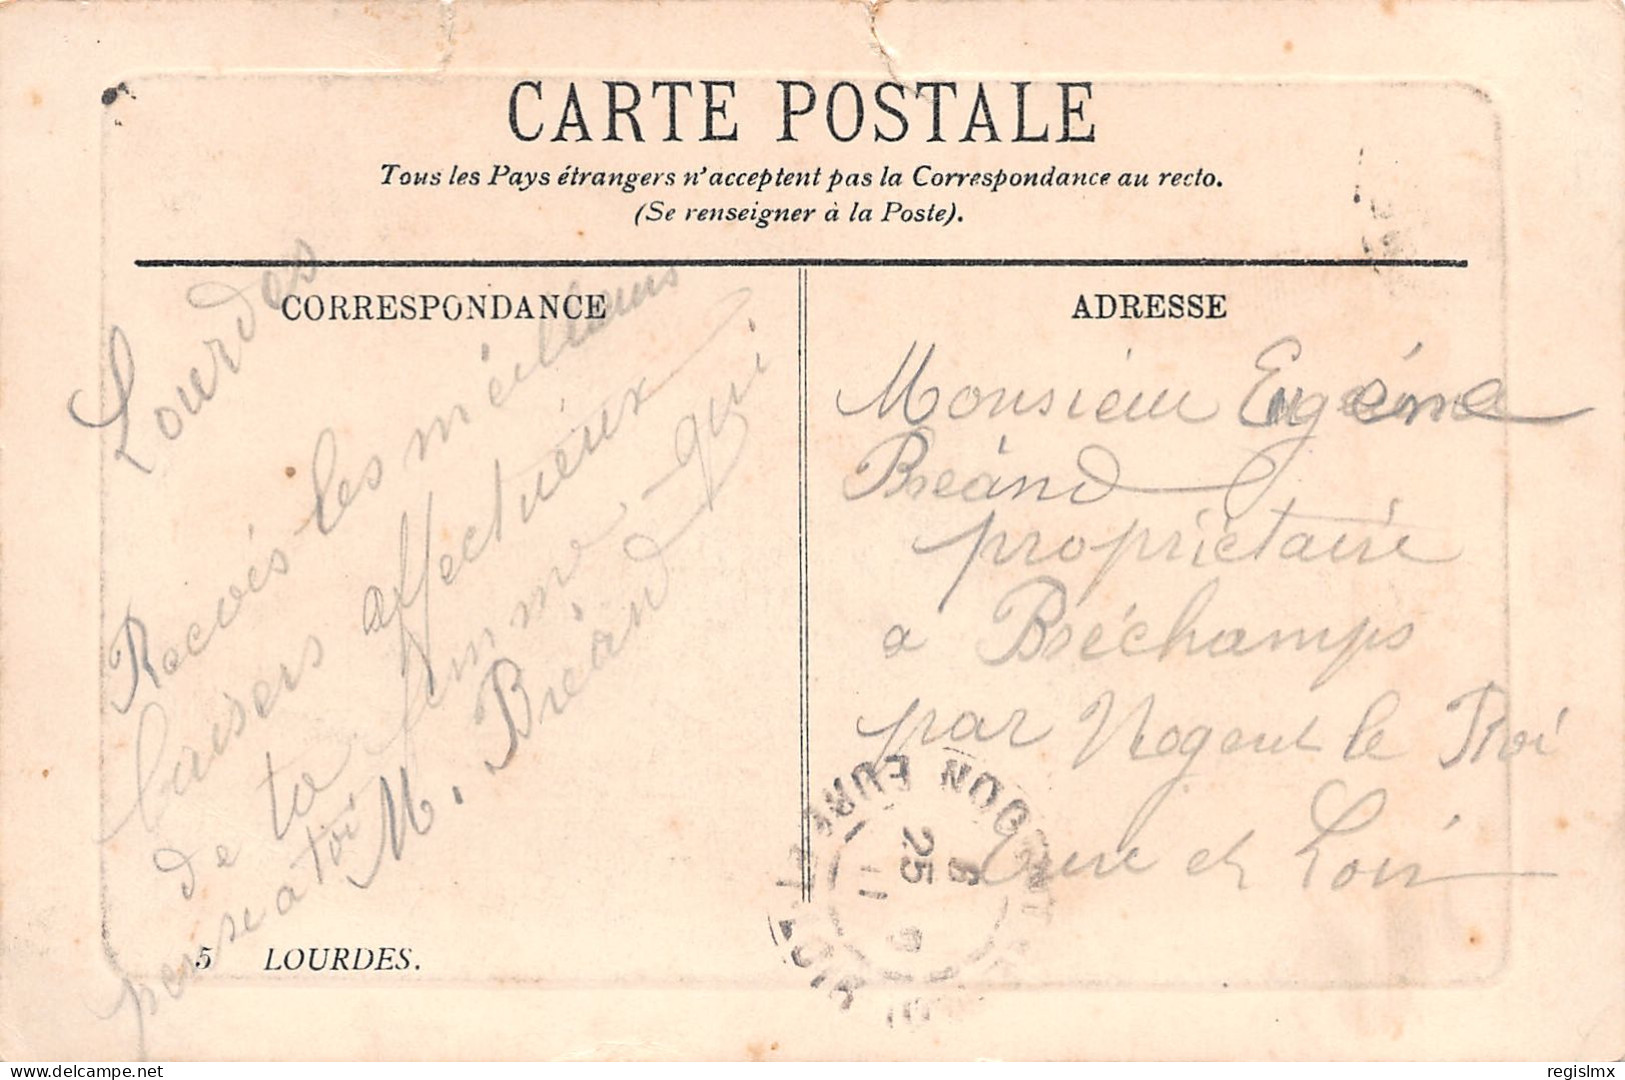 CARTE POSTALE
Tous les Pays étrangers n'acceptent pas la Correspondance au recto.
(Se renseigner à la Poste).
CORRESPONDANCE
Lourdes
Recois les meilleurs
baisers affectueux
de ta femme qui
pense a toi M. Bréand
5 LOURDES.
ADRESSE
Monsieur Eugène
Bréand
propriétaire
a Bréchamps
par Nogent le Roi
Eure et Loir
NOGENT
EURE ET LOIR
25
delcampe.net
regislmx